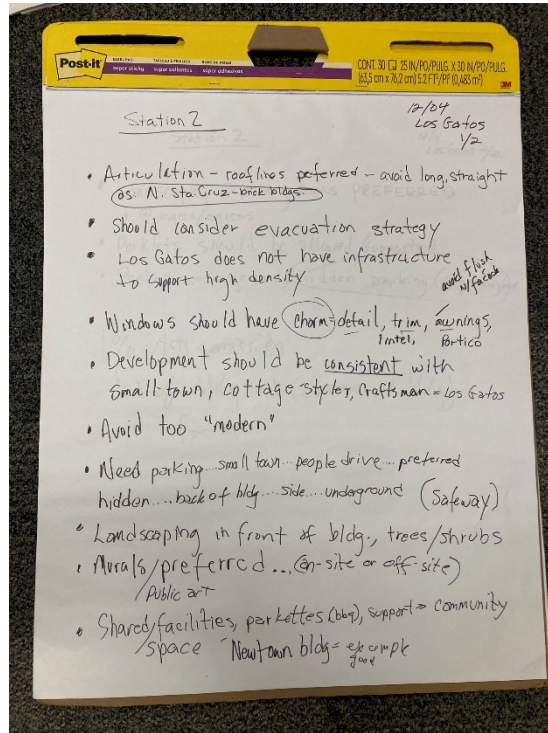 Post-it
super sticky super collantes super adhesivas
CONT. 30 25 IN/PO/PULG. X 30 IN/PO/PULG.
(63,5 cm x 76,2 cm) 5.2 FT²/PI² (0,483 m²)
3M
Station 2
12/04
Los Gatos
1/2
• Articulation - rooflines peferred - avoid long, straight
as N. Sta. Cruz - brick bldgs.
• Should consider evacuation strategy
• Los Gatos does not have infrastructure
to support high density
avoid flush
w/facade
• Windows should have charm = detail, trim, awnings,
lintel, Portico
• Development should be consistent with
small-town, cottage styles, Craftsman = Los Gatos
• Avoid too "modern"
• Need parking... small town... people drive... preferred
hidden.... back of bldg.... side.... underground (Safeway)
• Landscaping in front of bldg., trees/shrubs
• Murals/preferred... (on-site or off-site)
/Public art
• Shared/facilities, parkettes (bbq), support → community
/space Newtown bldg = example
good